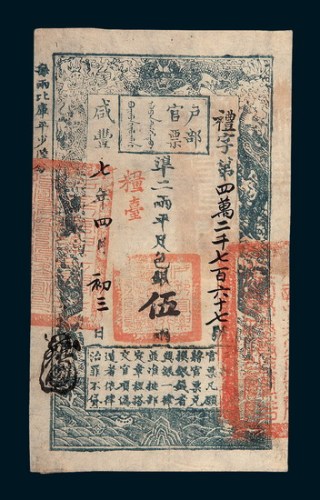 戶部
官票
禮字第四萬二千七百六十七號
準二兩平足色銀伍兩
糧臺
咸豐七年四月初三日
官票凡願
將官票兌
換銀錢者
與銀一律
並准按部
定章程搭
交官項僞
造者依律
治罪不貸
每兩比庫平少